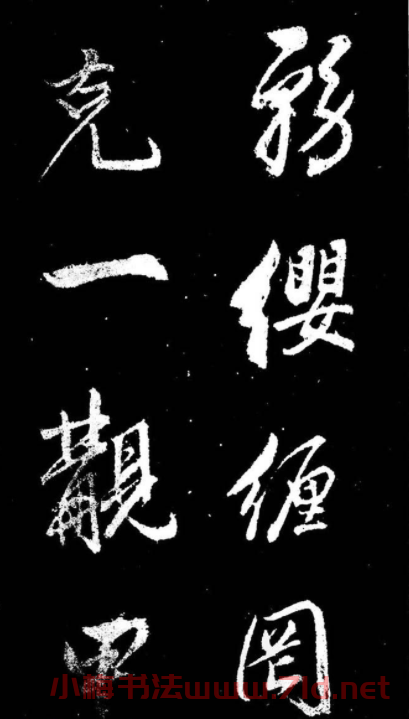 務纓纏罔
克一覯甲
书法www.7ld.net